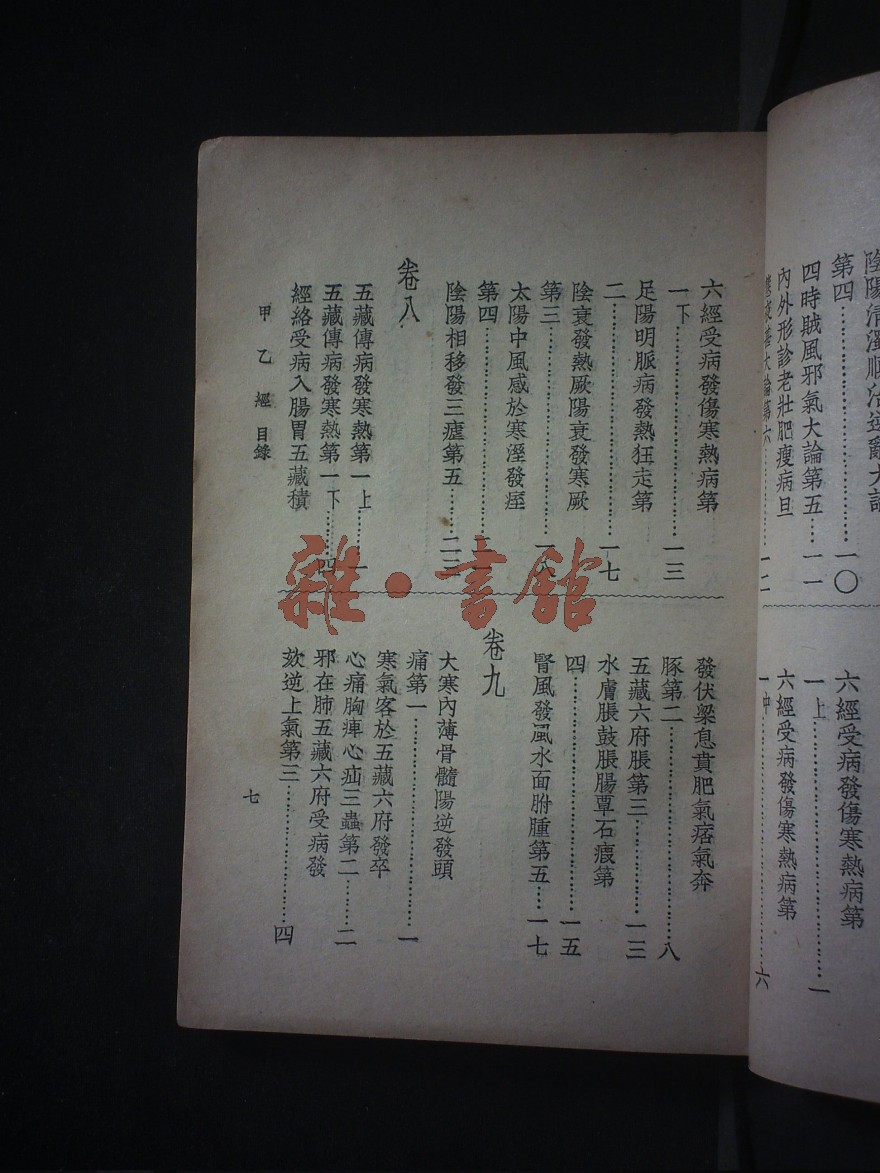 陰陽清濁順治逆亂大論
第四……一〇
四時賊風邪氣大論第五……一一
內外形診老壯肥瘦病旦
慧夜甚大論第六……一二
六經受病發傷寒熱病第
一上……一
六經受病發傷寒熱病第
一中……六
六經受病發傷寒熱病第
一下……一三
足陽明脈病發熱狂走第
二……一七
陰衰發熱厥陽衰發寒厥
第三……
太陽中風感於寒溼發痙
第四……
陰陽相移發三瘧第五……二三
卷八
五藏傳病發寒熱第一上……一
五藏傳病發寒熱第一下……四
經絡受病入腸胃五藏積
發伏梁息賁肥氣痞氣奔
豚第二……八
五藏六府脹第三……一三
水膚脹鼓脹腸覃石瘕第
四……一五
腎風發風水面胕腫第五……一七
卷九
大寒內薄骨髓陽逆發頭
痛第一……一
寒氣客於五藏六府發卒
心痛胸痺心疝三蟲第二……二
邪在肺五藏六府受病發
欬逆上氣第三……四
甲乙經 目錄
七
雜·書館